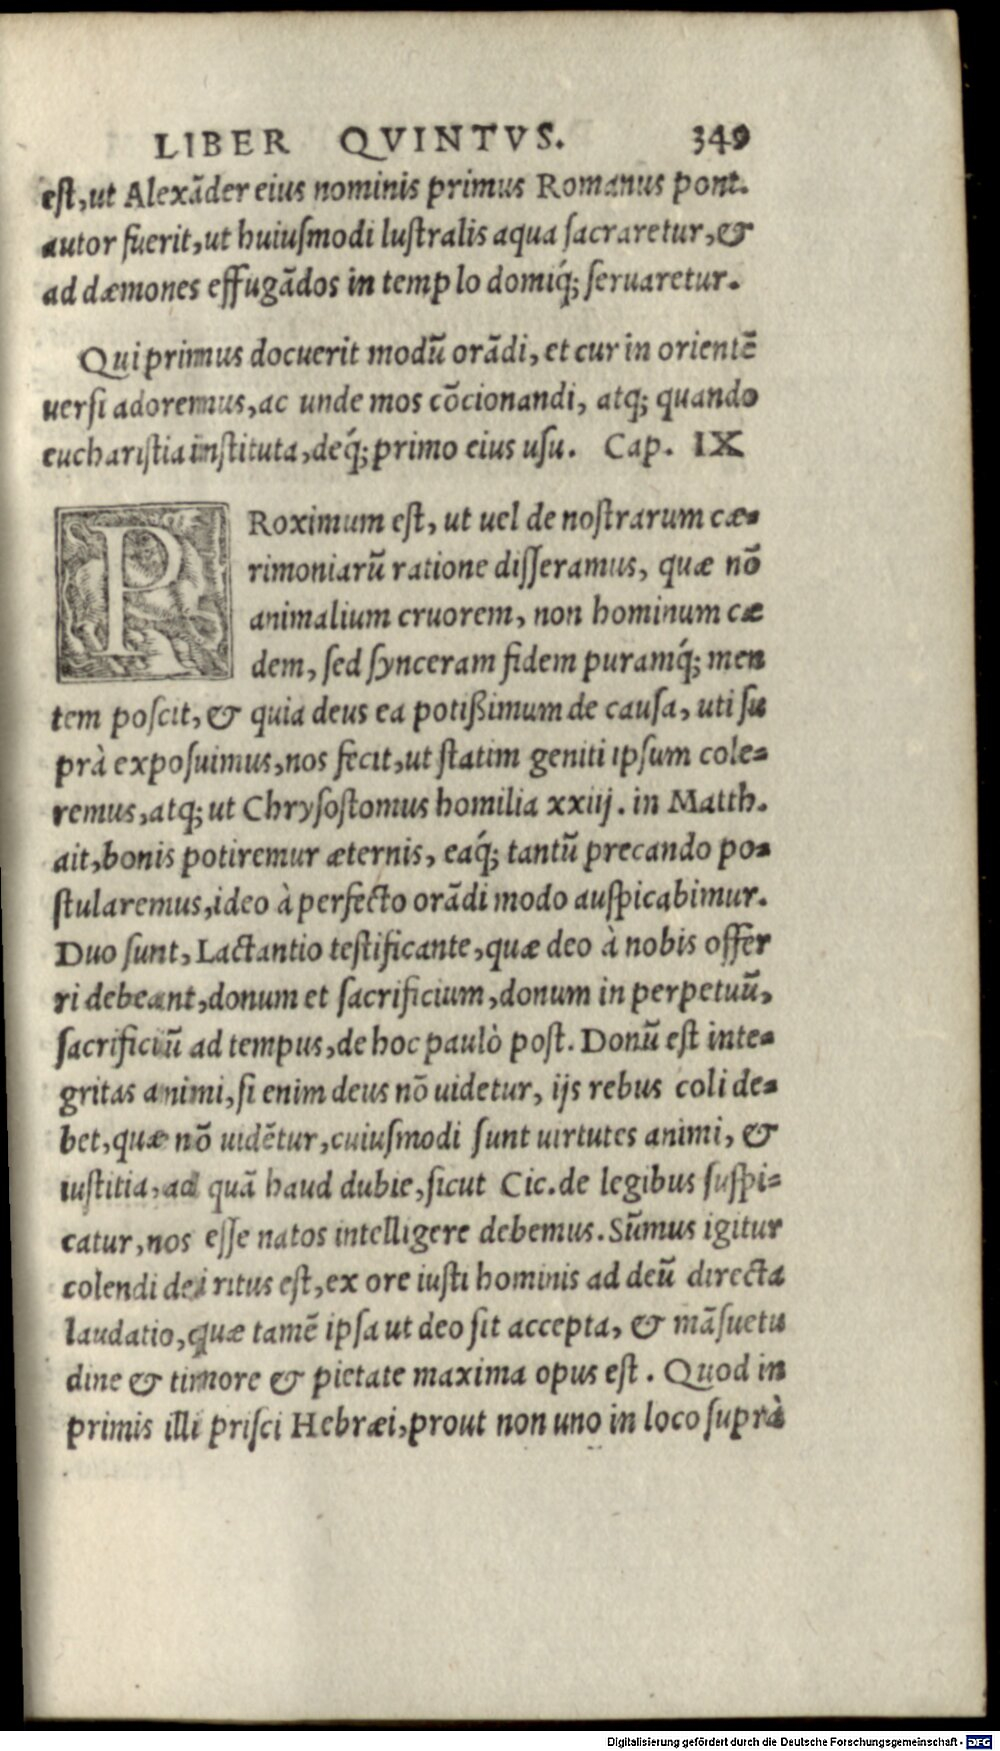 LIBER QVINTVS. 349
est, ut Alexãder eius nominis primus Romanus pont.
autor fuerit, ut huiusmodi lustralis aqua sacraretur, &
ad dæmones effugãdos in templo domiq́; seruaretur.
Qui primus docuerit modũ orãdi, et cur in orientẽ
uersi adoremus, ac unde mos cõcionandi, atq; quando
eucharistia instituta, deq́; primo eius usu. Cap. IX
Roximum est, ut uel de nostrarum cæ-
rimoniarũ ratione disseramus, quæ nõ
animalium cruorem, non hominum cæ
dem, sed synceram fidem puramq́; men
tem poscit, & quia deus ea potißimum de causa, uti su
prà exposuimus, nos fecit, ut statim geniti ipsum cole-
remus, atq; ut Chrysostomus homilia xxiij. in Matth.
ait, bonis potiremur æternis, eaq́; tantũ precando po-
stularemus, ideo à perfecto orãdi modo auspicabimur.
Duo sunt, Lactantio testificante, quæ deo à nobis offer
ri debeant, donum et sacrificium, donum in perpetuũ,
sacrificiũ ad tempus, de hoc paulò post. Donũ est inte-
gritas animi, si enim deus nõ uidetur, ijs rebus coli de-
bet, quæ nõ uidẽtur, cuiusmodi sunt uirtutes animi, &
iustitia, ad quã haud dubie, sicut Cic. de legibus suspi-
catur, nos esse natos intelligere debemus. Sũmus igitur
colendi dei ritus est, ex ore iusti hominis ad deũ directa
laudatio, quæ tamẽ ipsa ut deo sit accepta, & mãsuetu
dine & timore & pietate maxima opus est. Quod in
primis illi prisci Hebræi, prout non uno in loco suprà
Digitalisierung gefördert durch die Deutsche Forschungsgemeinschaft - DFG